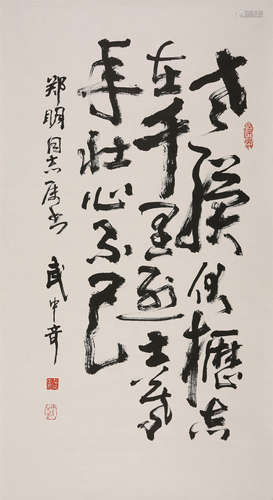 老骥伏枥志
在千里烈士暮
年壮心不已
郑明同志属书
武中奇